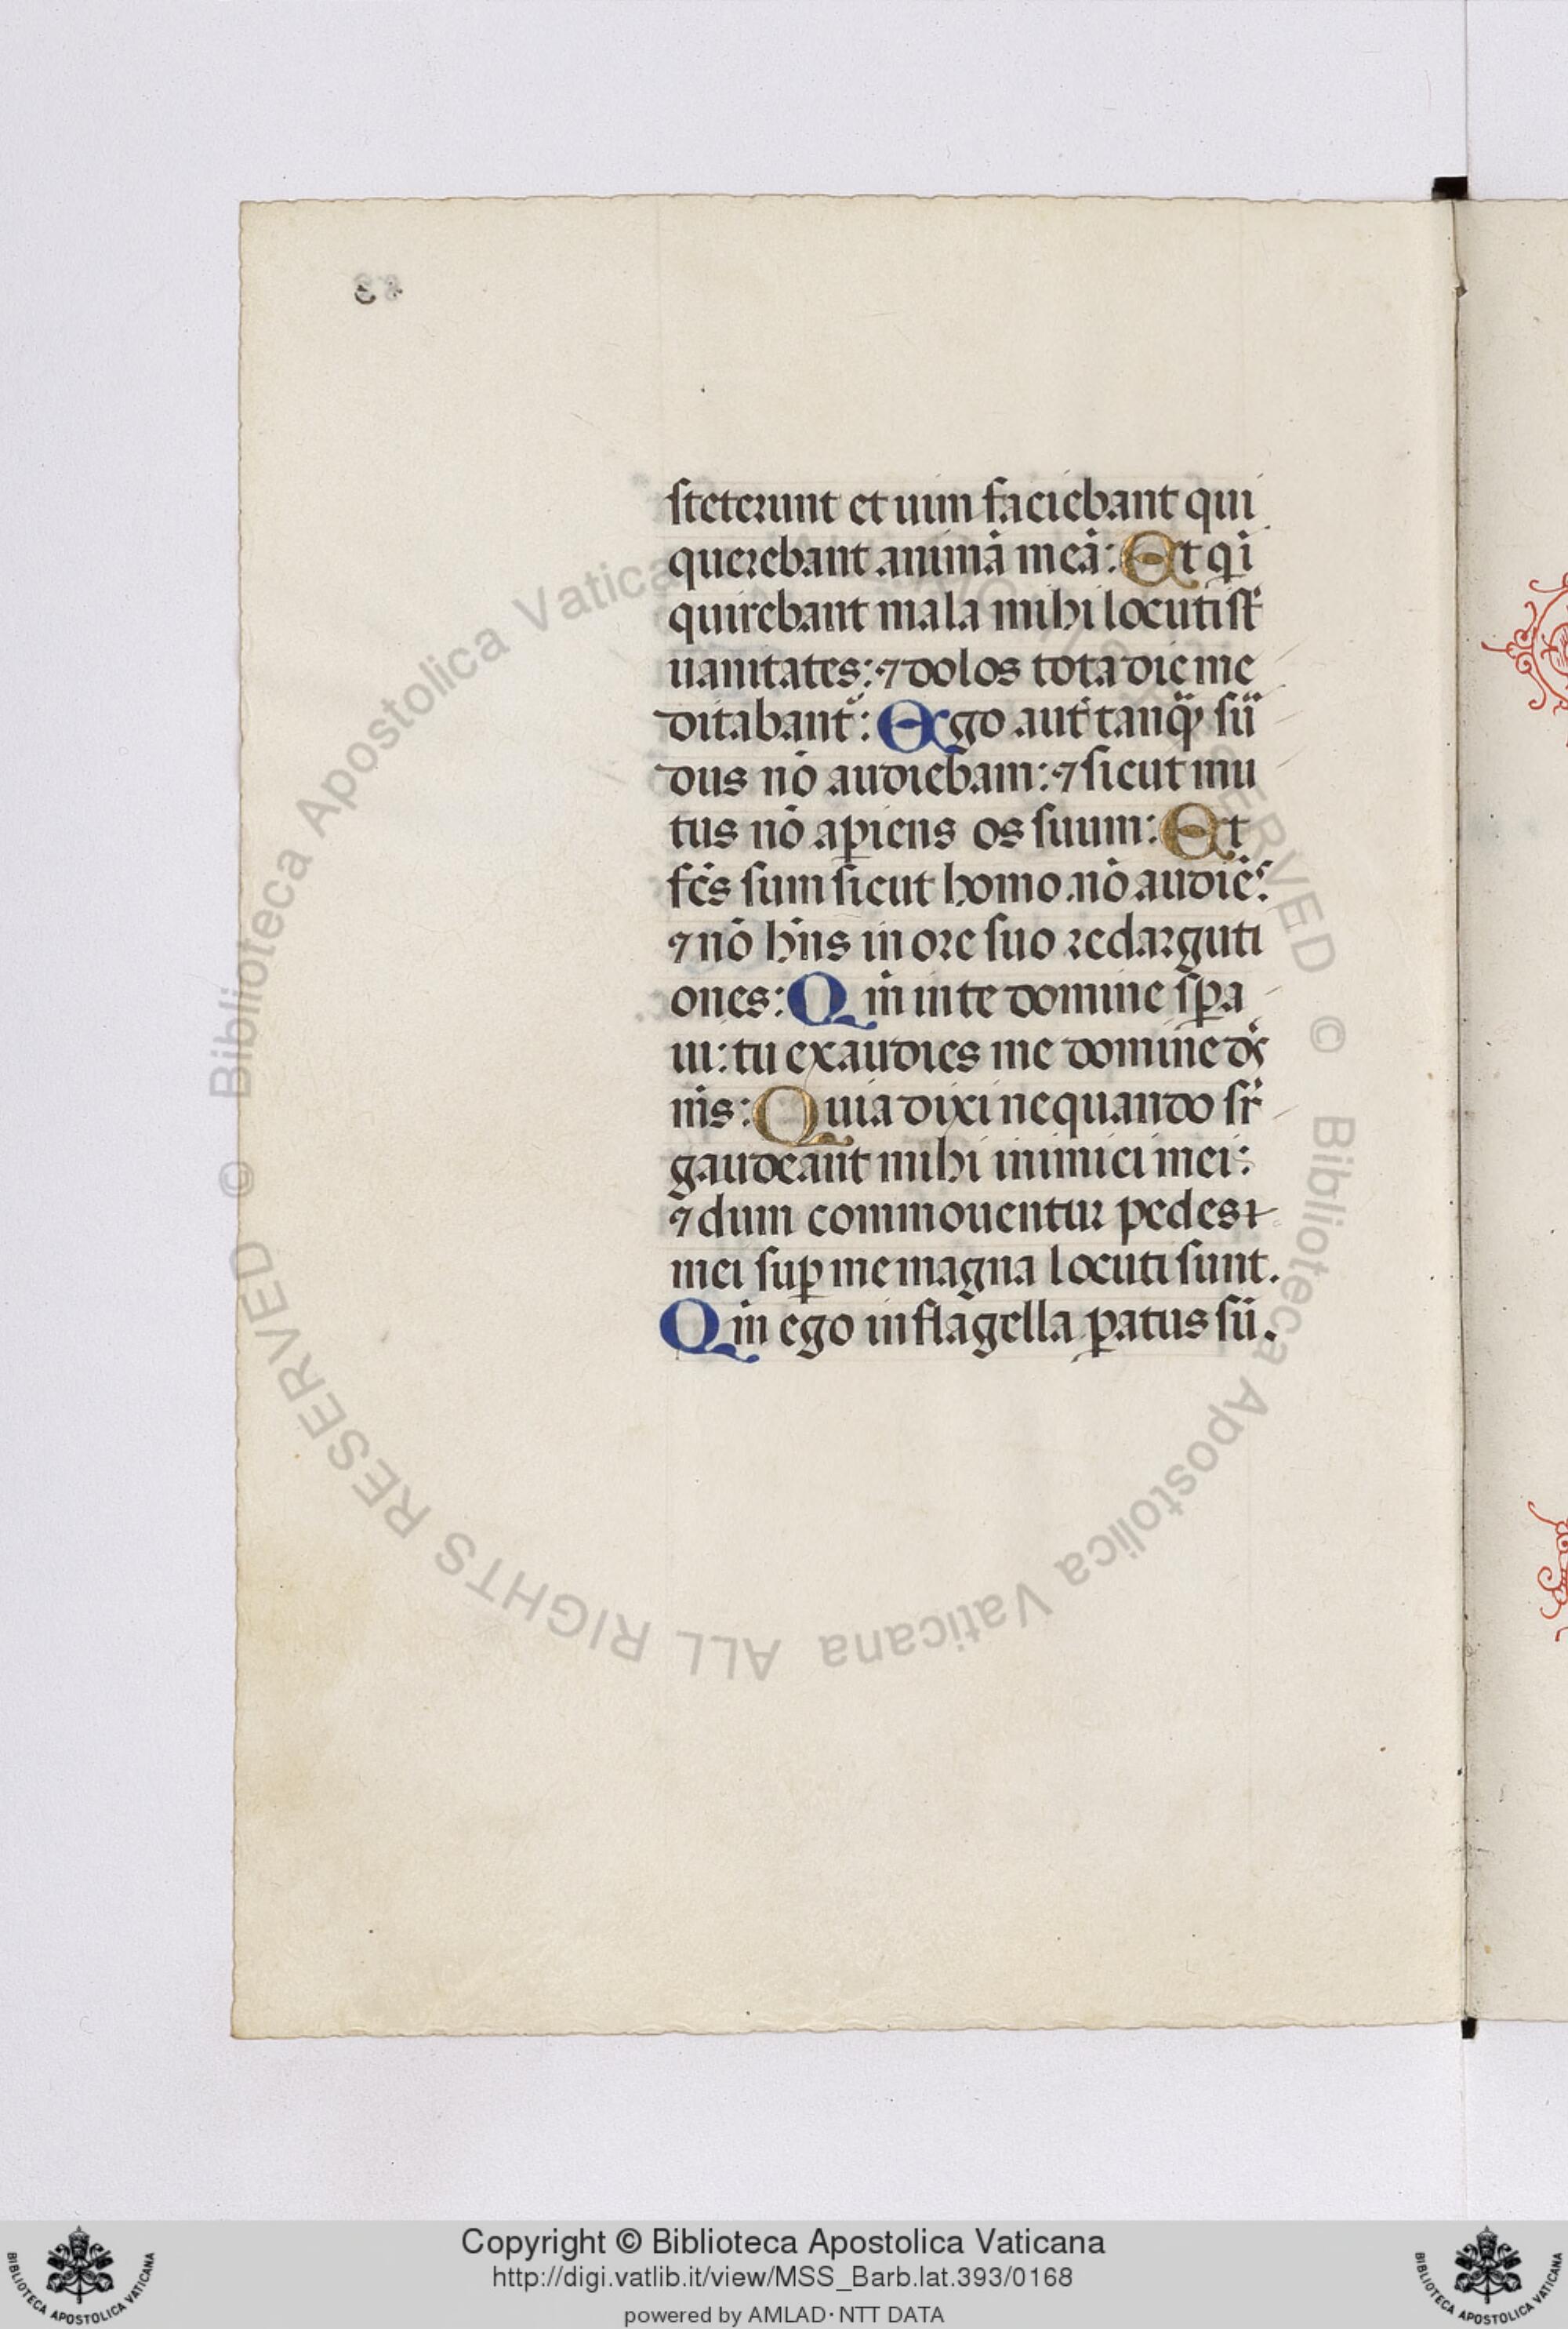 steterunt et uim faciebant qui
querebant animā meā: Et qi
quirebant mala mihi locuti st̄
uanitates: ⁊ dolos tota die me
ditabant᷑: Ego aut̄ tanqͣ sū
dus nō audiebam: ⁊ sicut mu
tus nō aꝑiens os suum: Et
fc̄s sum sicut homo nō audiēs
⁊ nō hn̄s in ore suo redarguti
ones: Qm̄ in te domine sꝑa
ui: tu exaudies me domine ds̄
ms̄: Quia dixi nequando sr̄
gaudeant mihi inimici mei:
⁊ dum commouentur pedes
mei suꝑ me magna locuti sunt.
Qm̄ ego in flagella ꝑatus sū.
© Biblioteca Apostolica Vaticana ALL RIGHTS RESERVED © Biblioteca Apostolica Vaticana ALL RIGHTS RESERVED
Copyright © Biblioteca Apostolica Vaticana
http://digi.vatlib.it/view/MSS_Barb.lat.393/0168
powered by AMLAD·NTT DATA
BIBLIOTECA APOSTOLICA VATICANA
BIBLIOTECA APOSTOLICA VATICANA